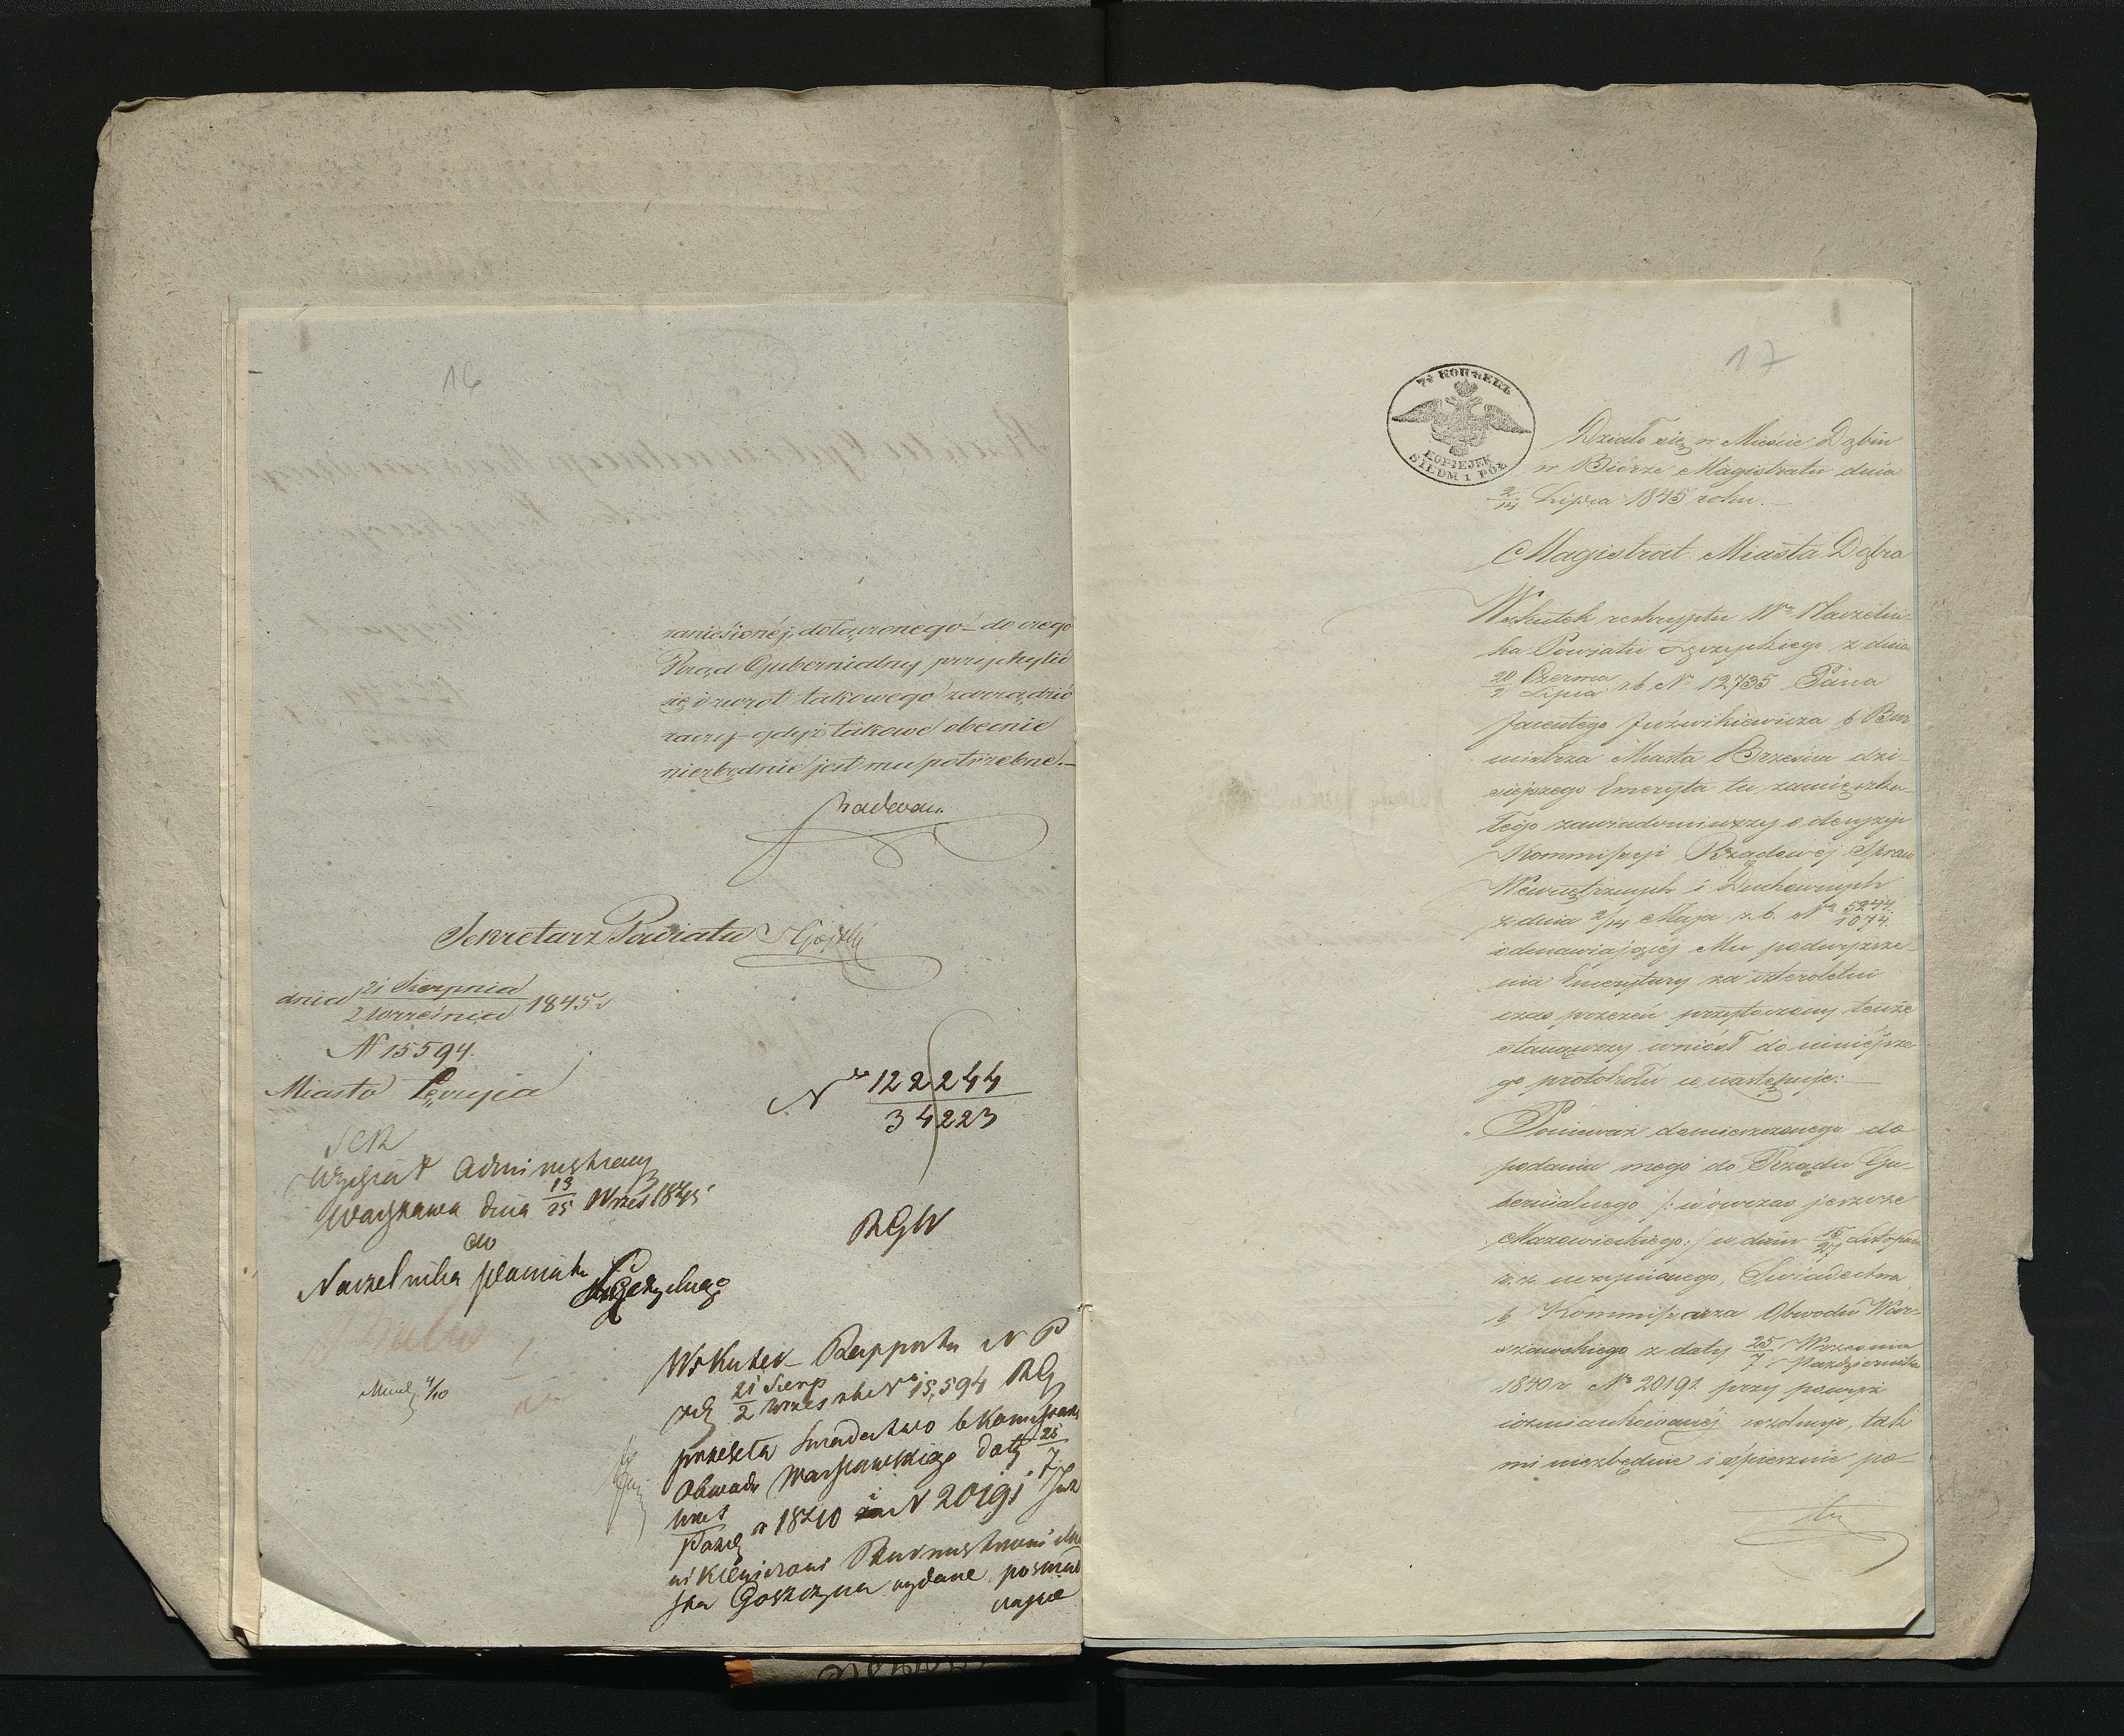 16
zaniesionéj, dołączonego – do czego
Rząd Gubernialny przychylić
się i zwrot takowego zarządzić
raczy – gdyż takowe obecnie
niezbędnie jest mu potrzebne. –
Sekretarz Powiatu
dnia 21 Sierpnia / 2 Września 1845 r
N 15594.
Miasto Łęczyca
Wydział Administracyj
Warszawa dnia 13/25 Wrześ 1845
do
Naczelnika Powiatu Łęczyckiego
No 122244 / 34223
RGW
Wskutek Rapportu N P
z d 21 Sierp / 2 Wrześ r b No 15,594 RG
przesyła świadectwo b Komissarza
Obwodu Warszawskiego daty 25/7
Wrześ / Paźdz r 1840 N 20191 Józ
wikiewiczowi Burmistrzowi Mia
sta Goszczyna wydane
17
7½ КОПѢЕКЪ
KOPIEJEK
SIEDM I PÓŁ
Działo się w Mieście Dąbiu
w Biórze Magistratu dnia
2/14 Lipca 1845 roku. –
Magistrat Miasta Dąbia
Wskutek reskryptu Wo Naczelni-
ka Powiatu Łęczyckiego z dnia
20 Czerwca / 2 Lipca r b No 12735 Pana
Jacentego Juźwikiewicza b Bur
mistrza Miasta Brzezin dzi-
siejszego Emeryta tu zamieszka-
łego zawiadomiwszy o decyzji
Kommissyi Rządowéj Spraw
Wewnętrznych i Duchownych
z dnia 2/14 Maja r. b. No 5244 / 1074
odmawiającéj Mu podwyższe-
nia Emerytury za czteroletni
czas przezeń przytoczony tenże
stanąwszy wniósł do niniejsze
go protokółu co następuje: –
„Ponieważ domieszczonego do
podania mego do Rządu Gu-
bernialnego /: wówczas jeszcze
Mazowieckiego :/ w dniu 15/27 Listopada
z. r. uczynionego, Świadectwa
b Kommissarza Obwodu War-
szawskiego z daty 25 Września / 7 Października
1840 r No 20191 przy powyż
wzmiankowanéj rezolucyi, tak
mi niezbędnie i śpiesznie po-